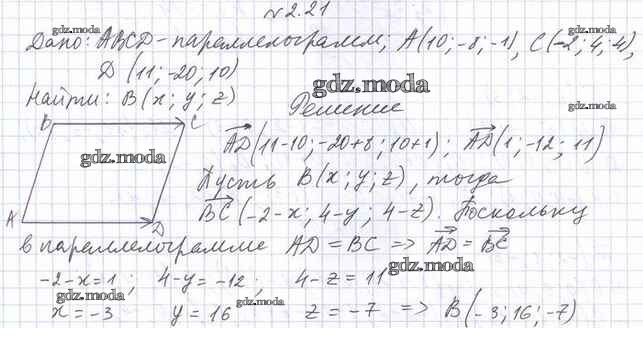 №2.21
gdz.moda gdz.moda
Дано: ABCD - параллелограмм; A(10; -8; -1), C(-2; 4; 4),
D(11; -20; 10)
gdz.moda
Найти: B(x; y; z)
gdz.moda gdz.moda
Решение
B C
AD(11-10; -20+8; 10+1); AD(1; -12; 11)
gdz.moda
Пусть B(x; y; z), тогда
A D
BC(-2-x; 4-y; 4-z). Поскольку
в параллелограмме AD = BC => AD = BC
gdz.moda
-2-x=1; 4-y=-12; 4-z=11
gdz.moda gdz.moda gdz.moda
x=-3 y=16 z=-7 => B(-3; 16; -7)